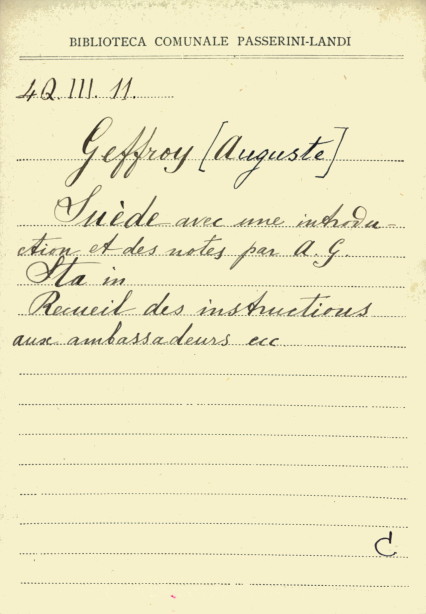 BIBLIOTECA COMUNALE PASSERINI-LANDI
4Q.III. 11.
Geffroy [Auguste]
Suède avec une introdu-
ction et des notes par A. G.
Sta in
Recueil des instructions
aux ambassadeurs ecc
C